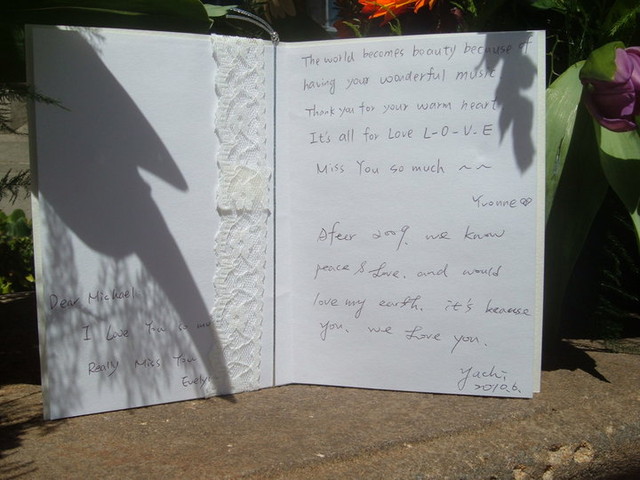 Dear Michael
I Love You so mu
Really Miss You
Evely
The world becomes beauty because of
having your wonderful music
Thank you for your warm heart
It's all for Love L-O-V-E
Miss You so much ~~
Yvonne
After 2009, we know
peace & Love. and would
love my earth. it's because
you. we Love you.
Yachi
2010.6.